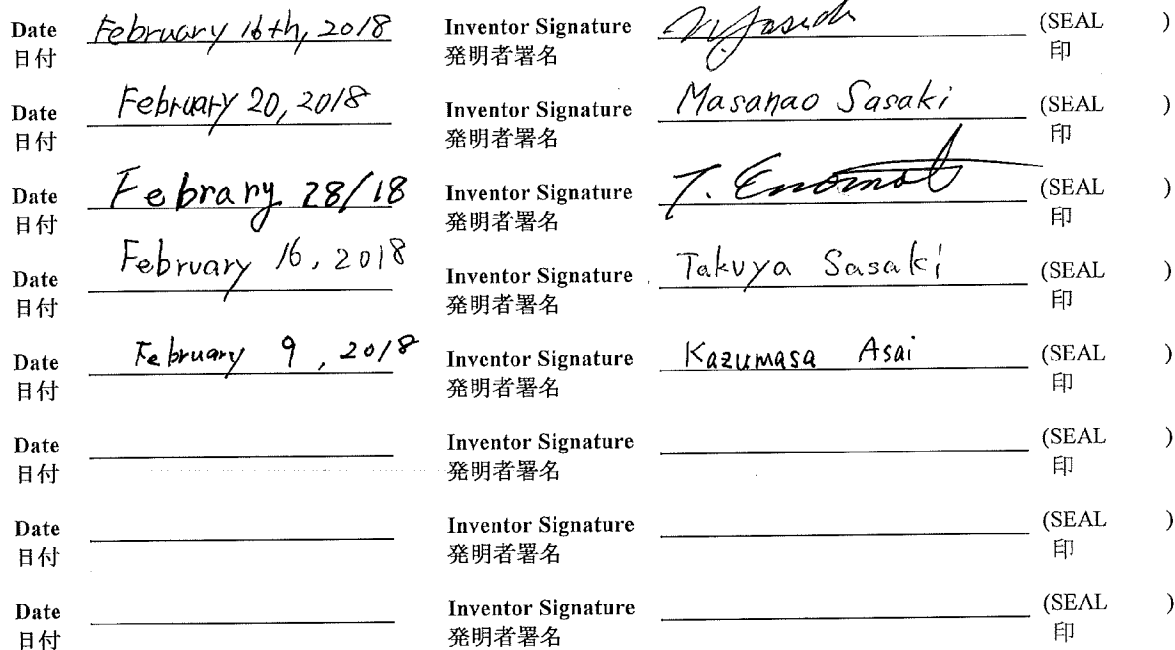 Date February 16th, 2018 Inventor Signature (SEAL )
日付 発明者署名 印
Date February 20, 2018 Inventor Signature Masanao Sasaki (SEAL )
日付 発明者署名 印
Date Febrary 28/18 Inventor Signature T. Enomot (SEAL )
日付 発明者署名 印
Date February 16, 2018 Inventor Signature Takuya Sasaki (SEAL )
日付 発明者署名 印
Date February 9, 2018 Inventor Signature Kazumasa Asai (SEAL )
日付 発明者署名 印
Date Inventor Signature (SEAL )
日付 発明者署名 印
Date Inventor Signature (SEAL )
日付 発明者署名 印
Date Inventor Signature (SEAL )
日付 発明者署名 印